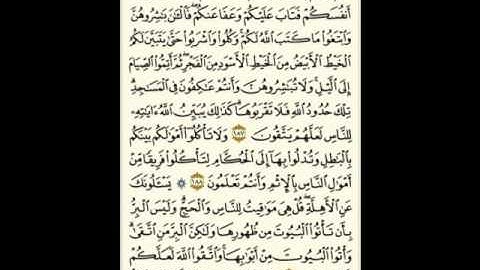 أَنفُسَكُمْ فَتَابَ عَلَيْكُمْ وَعَفَا عَنكُمْ ۖ فَٱلْـَٰٔنَ بَـٰشِرُوهُنَّ
وَٱبْتَغُوا۟ مَا كَتَبَ ٱللَّهُ لَكُمْ ۚ وَكُلُوا۟ وَٱشْرَبُوا۟ حَتَّىٰ يَتَبَيَّنَ لَكُمُ
ٱلْخَيْطُ ٱلْأَبْيَضُ مِنَ ٱلْخَيْطِ ٱلْأَسْوَدِ مِنَ ٱلْفَجْرِ ۖ ثُمَّ أَتِمُّوا۟ ٱلصِّيَامَ
إِلَى ٱلَّيْلِ ۚ وَلَا تُبَـٰشِرُوهُنَّ وَأَنتُمْ عَـٰكِفُونَ فِى ٱلْمَسَـٰجِدِ ۗ
تِلْكَ حُدُودُ ٱللَّهِ فَلَا تَقْرَبُوهَا ۗ كَذَٰلِكَ يُبَيِّنُ ٱللَّهُ ءَايَـٰتِهِۦ
لِلنَّاسِ لَعَلَّهُمْ يَتَّقُونَ ١٨٧ وَلَا تَأْكُلُوٓا۟ أَمْوَٰلَكُم بَيْنَكُم
بِٱلْبَـٰطِلِ وَتُدْلُوا۟ بِهَآ إِلَى ٱلْحُكَّامِ لِتَأْكُلُوا۟ فَرِيقًا مِّنْ
أَمْوَٰلِ ٱلنَّاسِ بِٱلْإِثْمِ وَأَنتُمْ تَعْلَمُونَ ١٨٨ ۞ يَسْـَٔلُونَكَ
عَنِ ٱلْأَهِلَّةِ ۖ قُلْ هِىَ مَوَٰقِيتُ لِلنَّاسِ وَٱلْحَجِّ ۗ وَلَيْسَ ٱلْبِرُّ
بِأَن تَأْتُوا۟ ٱلْبُيُوتَ مِن ظُهُورِهَا وَلَـٰكِنَّ ٱلْبِرَّ مَنِ ٱتَّقَىٰ ۗ
وَأْتُوا۟ ٱلْبُيُوتَ مِنْ أَبْوَٰبِهَا ۚ وَٱتَّقُوا۟ ٱللَّهَ لَعَلَّكُمْ